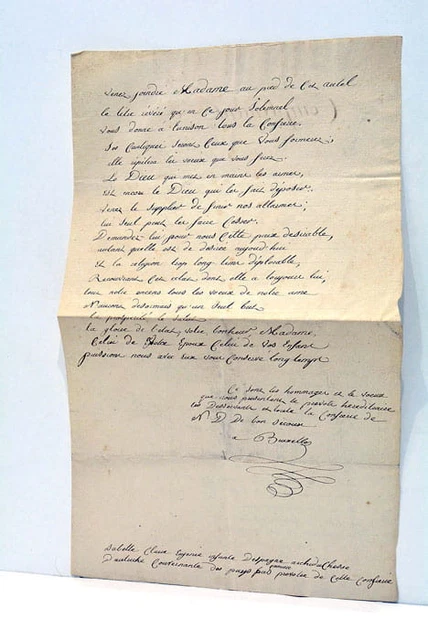 Venez joindre Madame au pied de Cet autel
le titre révéré qu'en Ce jour Solemnel
Vous donne à l'unison tous la Confrerie.
Ses Cantiques seront Ceux que Vous formerez,
elle répétera les voeux que vous ferez.
Le Dieu qui met en mains les armes,
est encor le Dieu qui les fait déposer.
Venez le Supplier de finir nos allarmes;
lui seul peut les faire Cesser.
Demandez lui pour nous Cette paix désirable,
autant quelle est desirée aujourd'hui
Et la religion trop long-tems déplorable,
Recouvrant Cet éclat dont elle a toujours lui,
tous notre encens tous les voeux de notre ame
N'auront desormais qu'un seul but
la prospérité le salut
la gloire de l'état, votre bonheur Madame
Celui de Votre Epoux Celui de vos Enfans
puissions nous avec eux vous Conserver long-temps
Ce sont les hommages et le voeux
que vous presentent le prevôt hereditaire
les Desservants et toute la Confrerie de
N. D. De bon Secours
a Bruxelles
Isabelle Claire Eugenie infante Despagne archiduchesse
Dautriche Gouvernante des pays bas premier prevôte de Cette Confrerie